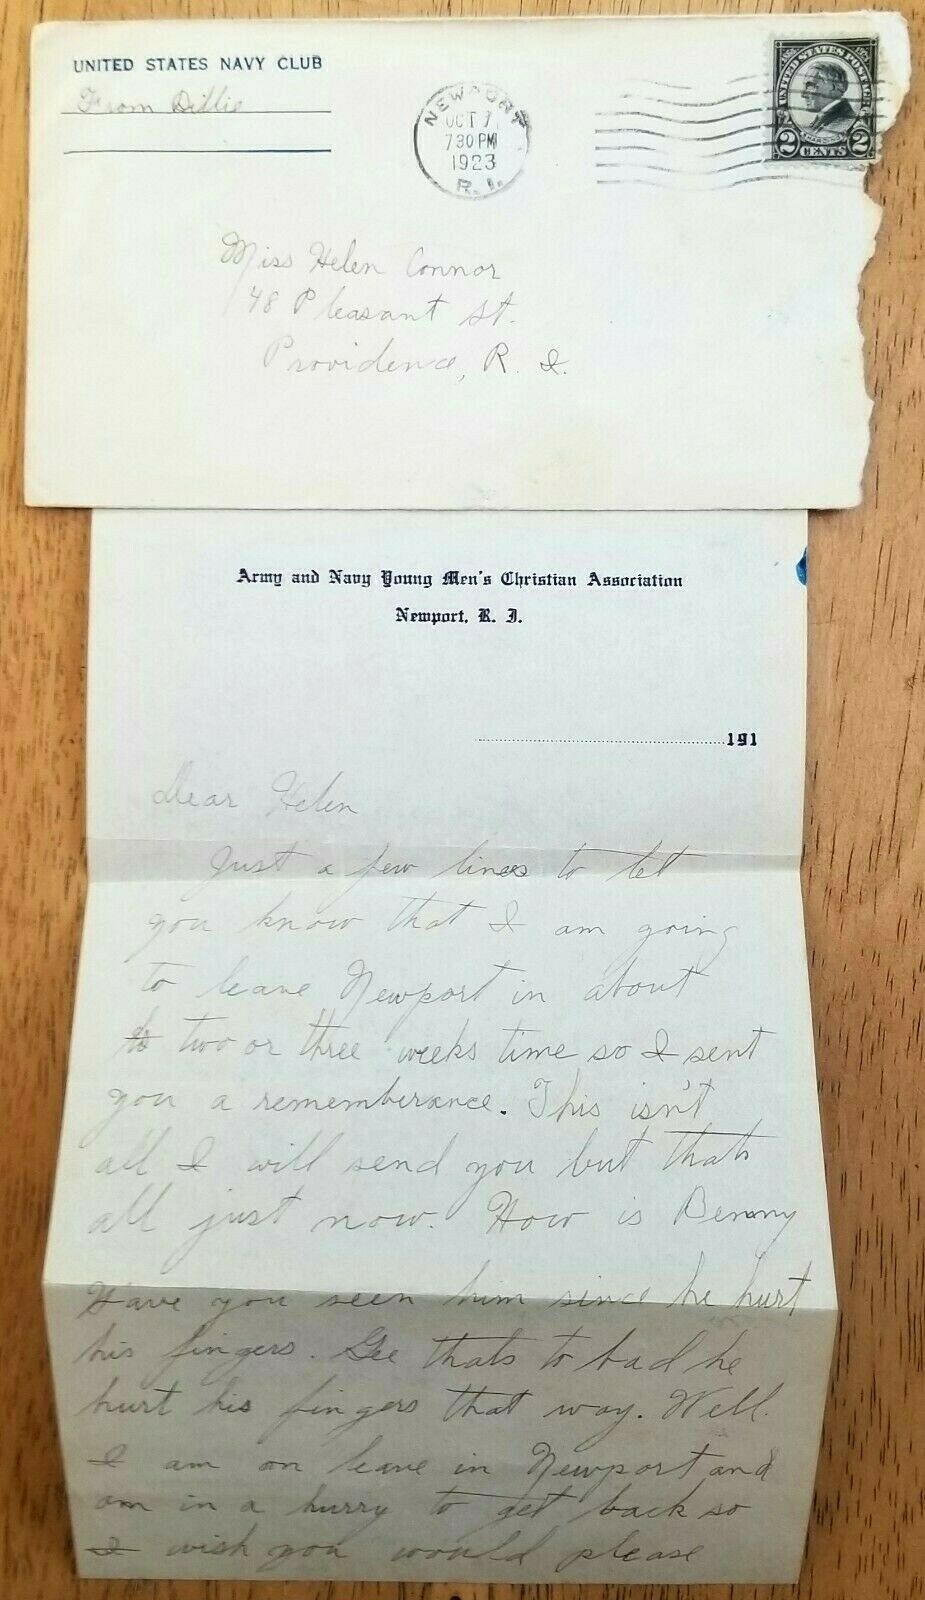 UNITED STATES NAVY CLUB
From Dillie
NEWPORT
OCT 7
730 PM
1923
R.I.
UNITED STATES POSTAGE
2 CENTS 2
Miss Helen Connor
48 Pleasant St.
Providence, R. I.
Army and Navy Young Men's Christian Association
Newport, R. I.
191
Dear Helen
Just a few lines to let
you know that I am going
to leave Newport in about
two or three weeks time so I sent
you a rememberance. This isn't
all I will send you but thats
all just now. How is Benny
Have you seen him since he hurt
his fingers. Gee thats to bad he
hurt his fingers that way. Well
I am on leave in Newport and
am in a hurry to get back so
I wish you would please